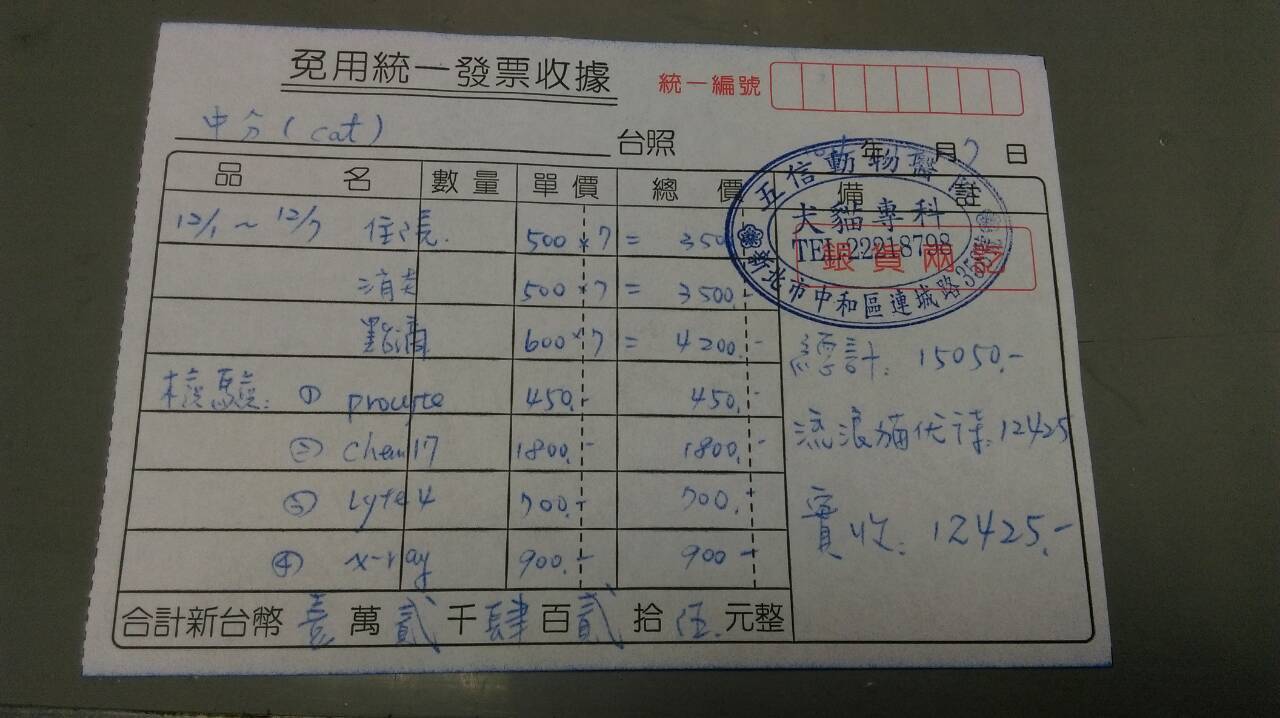 免用統一發票收據
統一編號
中分(cat) 台照
年 月 7 日
品名 數量 單價 總價 備註
五信動物醫院
犬貓專科
TEL:22218798
新北市中和區連城路356號
銀貨兩訖
12/1 ~ 12/7 住院 500×7 = 3500
消炎 500×7 = 3500.-
點滴 600×7 = 4200.-
總計: 15050.-
檢驗: ① procyte 450.- 450.-
流浪貓優待: 12425
② chem17 1800.- 1800.-
③ Lyte 4 700.- 700.-
實收: 12425.-
④ x-ray 900.- 900-
合計新台幣 壹 萬 貳 千 肆 百 貳 拾 伍 元整